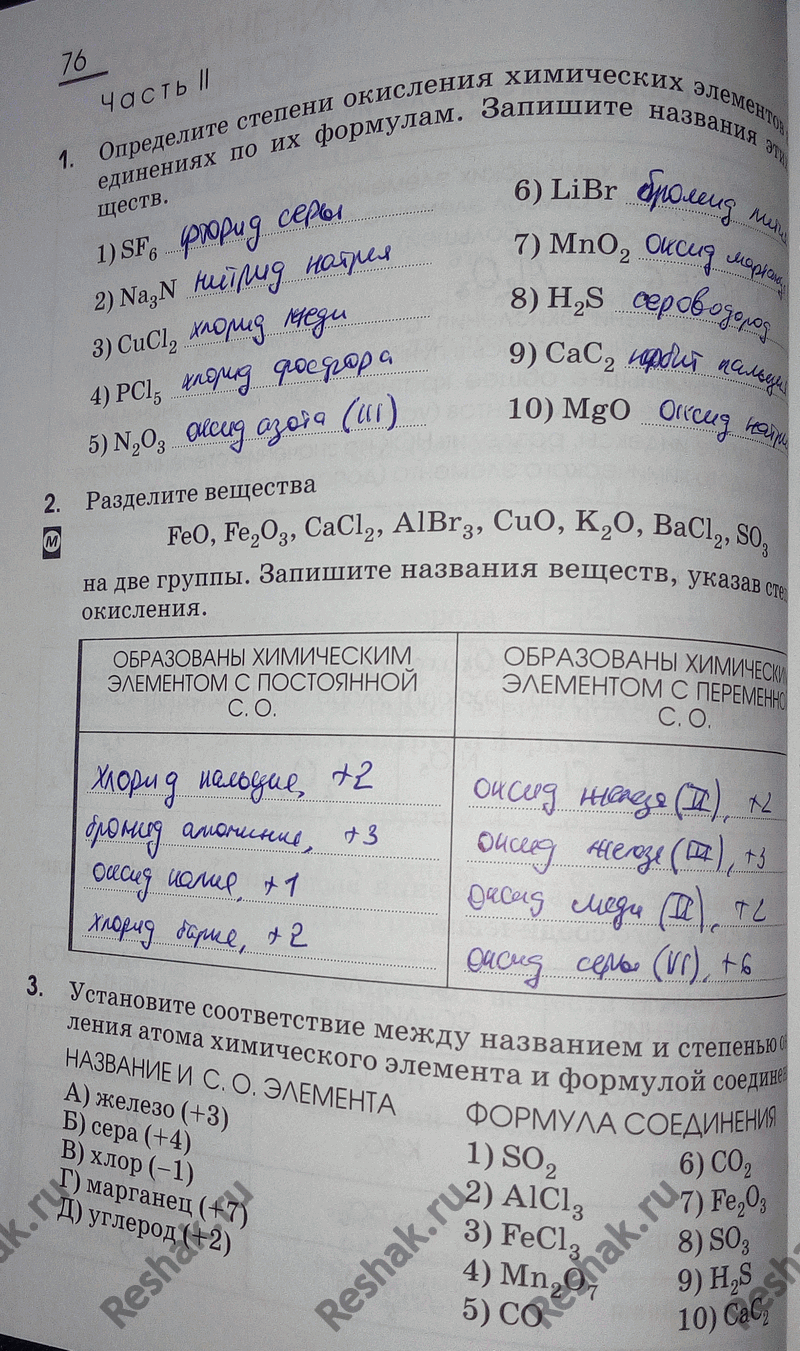 76
Часть II
1. Определите степени окисления химических элементов
единениях по их формулам. Запишите названия эти
ществ.
1) SF₆ фторид серы
2) Na₃N нитрид натрия
3) CuCl₂ хлорид меди
4) PCl₅ хлорид фосфора
5) N₂O₃ оксид азота (III)
6) LiBr бромид лити
7) MnO₂ оксид марганц
8) H₂S сероводород
9) CaC₂ карбит кальция
10) MgO Оксид
2. Разделите вещества
М
FeO, Fe₂O₃, CaCl₂, AlBr₃, CuO, K₂O, BaCl₂, SO₃
на две группы. Запишите названия веществ, указав сте
окисления.
ОБРАЗОВАНЫ ХИМИЧЕСКИМ
ЭЛЕМЕНТОМ С ПОСТОЯННОЙ
С. О.
хлорид кальция, +2
бромид алюминия, +3
оксид калия, +1
хлорид бария, +2
ОБРАЗОВАНЫ ХИМИЧЕСКИ
ЭЛЕМЕНТОМ С ПЕРЕМЕННО
С. О.
оксид железа (II), +2
оксид железа (III), +3
оксид меди (II), +2
оксид серы (VI), +6
3. Установите соответствие между названием и степенью о
ления атома химического элемента и формулой соедине
НАЗВАНИЕ И С. О. ЭЛЕМЕНТА
А) железо (+3)
Б) сера (+4)
В) хлор (−1)
Г) марганец (+7)
Д) углерод (+2)
ФОРМУЛА СОЕДИНЕНИЯ
1) SO₂
2) AlCl₃
3) FeCl₃
4) Mn₂O₇
5) CO
6) CO₂
7) Fe₂O₃
8) SO₃
9) H₂S
10) CaC₂
ak.ru
Reshak.ru
Reshak.ru
Reshak.ru
Resha